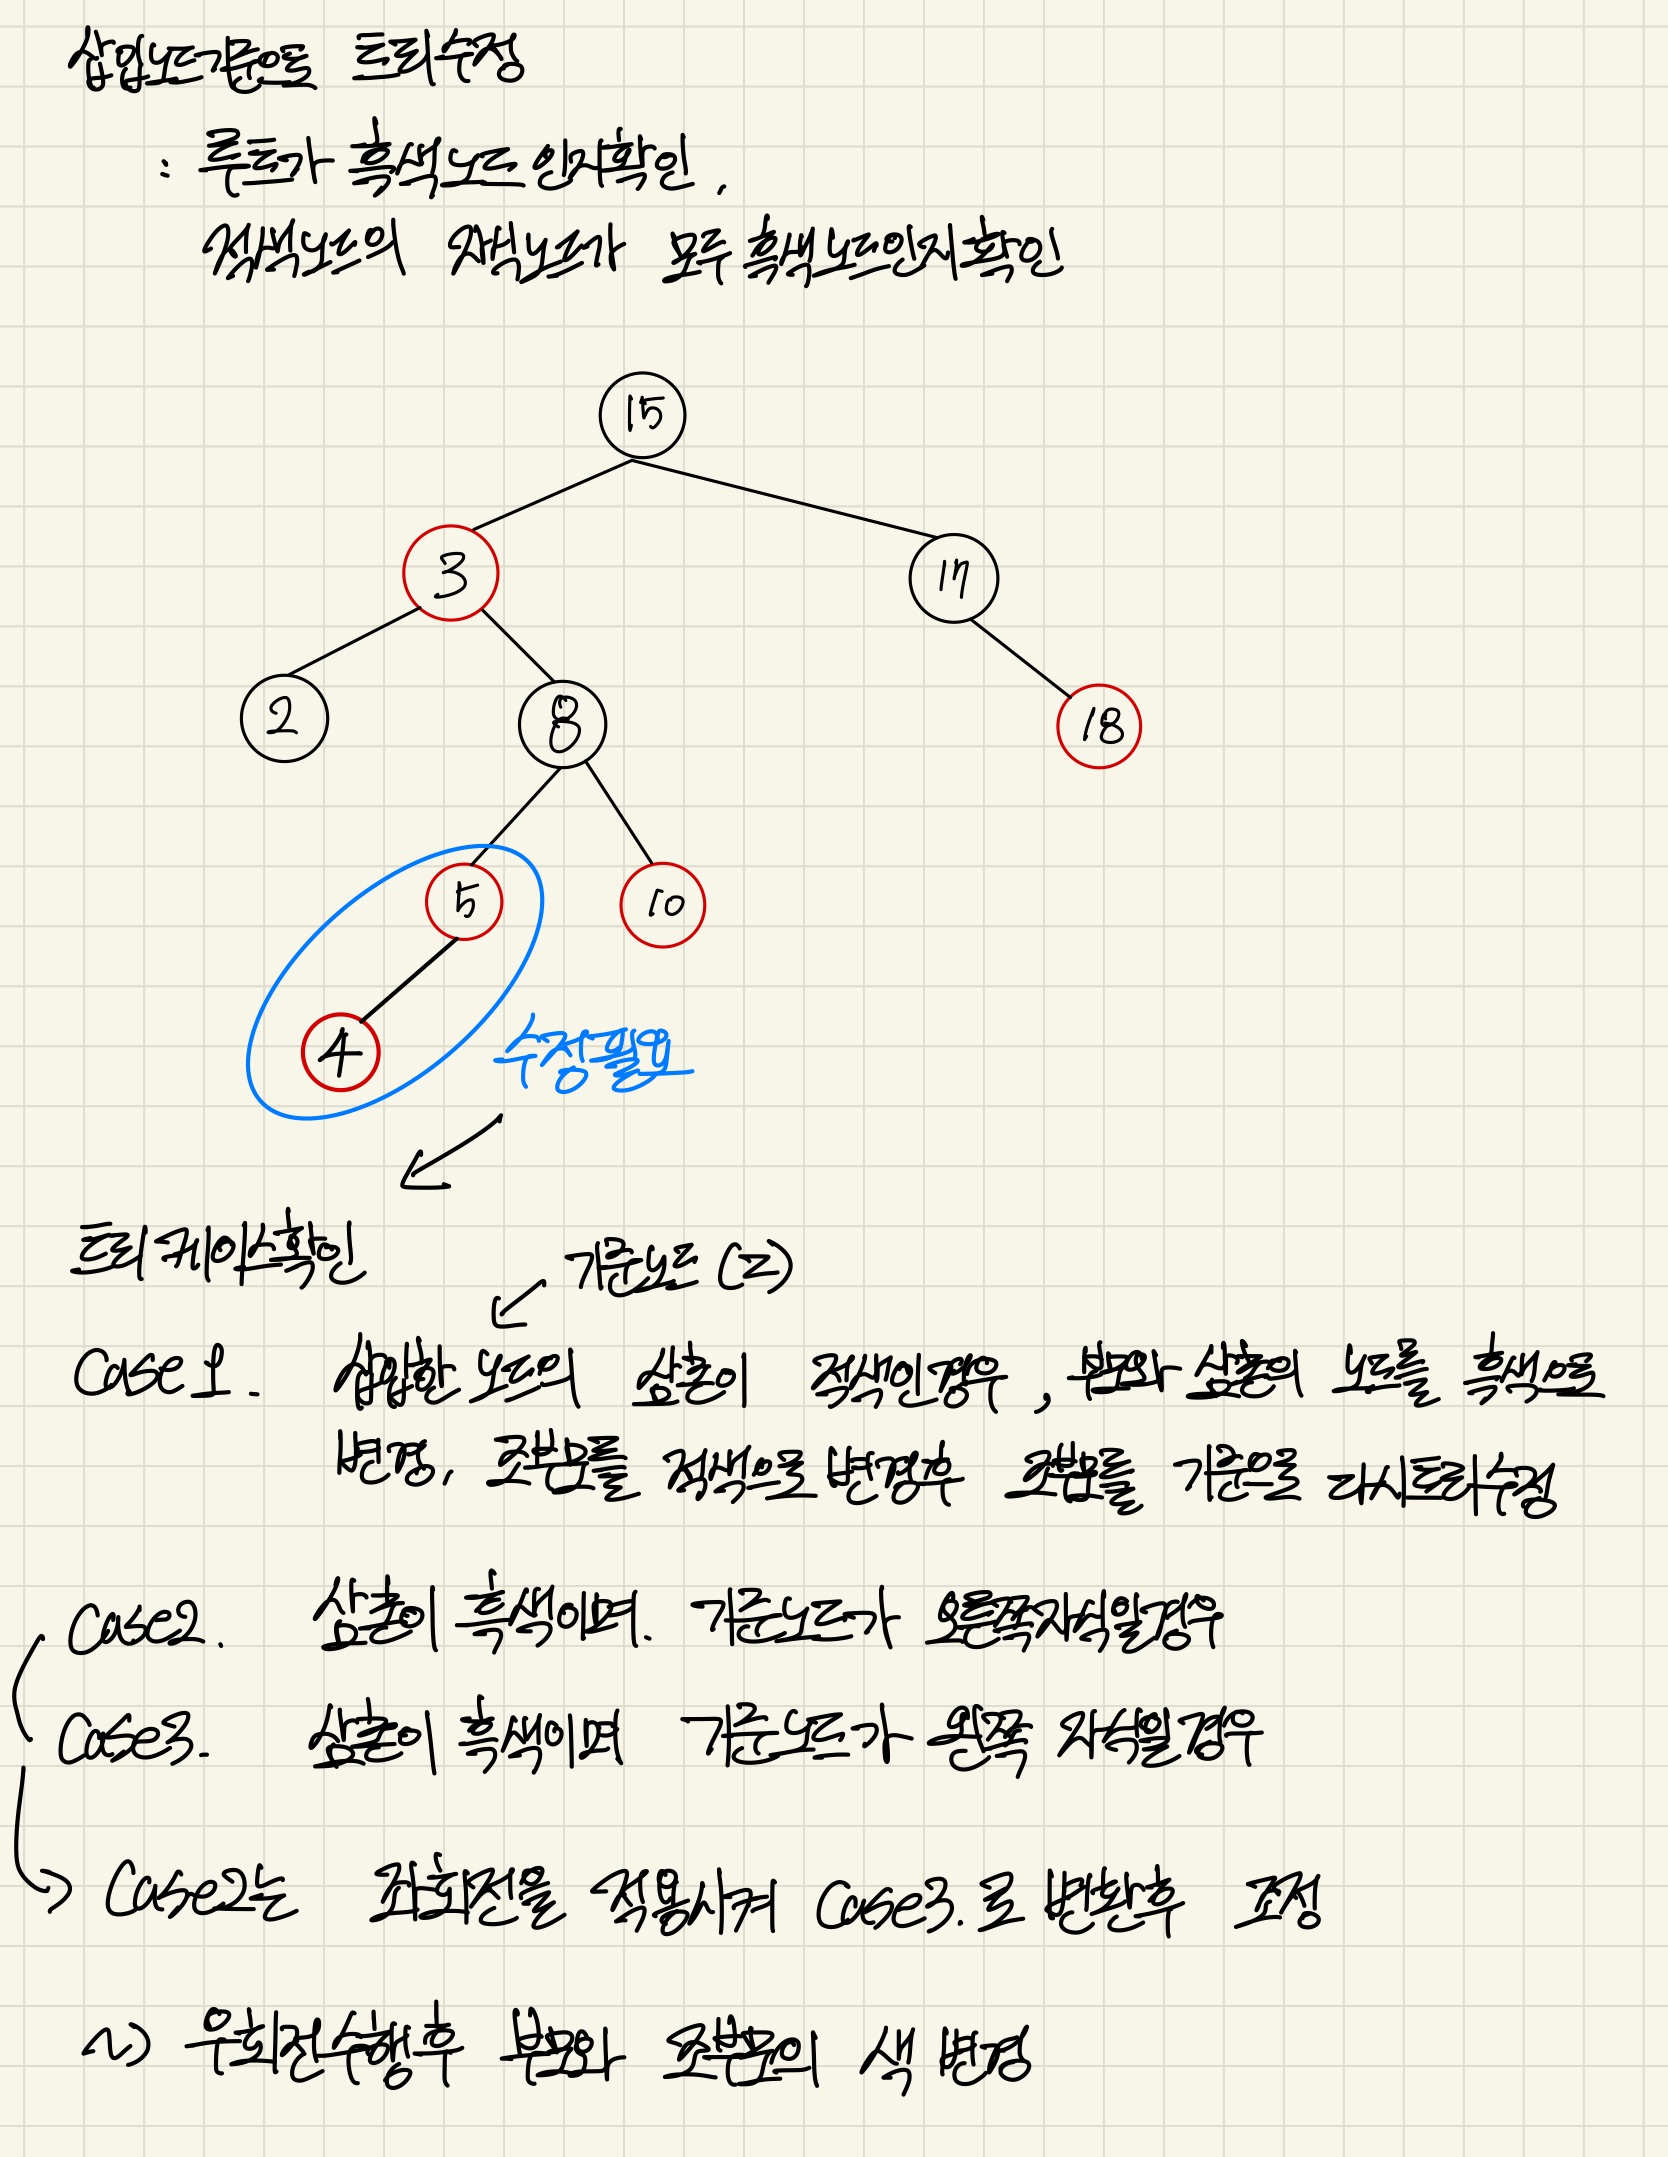 삽입노드기준으로 트리수정
: 루트가 흑색노드 인지확인,
적색노드의 자식노드가 모두 흑색노드인지확인
15
3
17
2
8
18
5
10
4
수정필요
트리 케이스확인
기준노드 (z)
Case 1. 삽입한 노드의 삼촌이 적색인경우, 부모와 삼촌의 노드를 흑색으로
변경, 조부모를 적색으로 변경후 조부모를 기준으로 다시트리수정
Case2. 삼촌이 흑색이며. 기준노드가 오른쪽자식일경우
Case3. 삼촌이 흑색이며 기준노드가 왼쪽 자식일경우
Case2는 좌회전을 적용시켜 Case3.로 변환후 조정
~> 우회전수행후 부모와 조부모의 색 변경